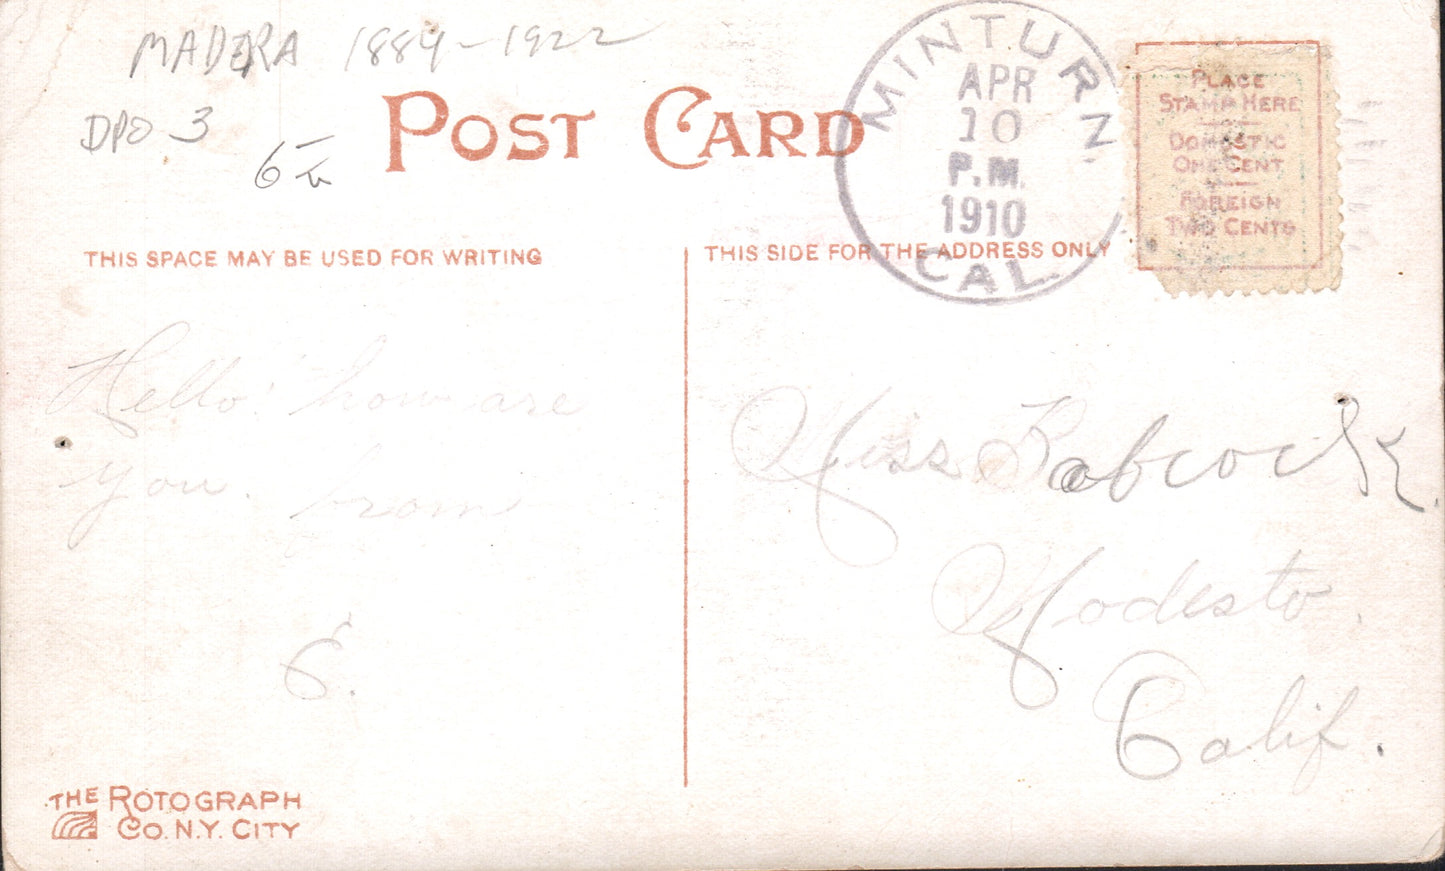 MADERA 1884-1922
DPO 3
6
POST CARD
MINTURN
APR
10
P.M.
1910
CAL.
PLACE
STAMP HERE
DOMESTIC
ONE CENT
FOREIGN
TWO CENTS
THIS SPACE MAY BE USED FOR WRITING
THIS SIDE FOR THE ADDRESS ONLY
Hello! how are
you. from
E.
Miss Babcock.
Modesto.
Calif.
THE ROTOGRAPH
CO. N.Y. CITY